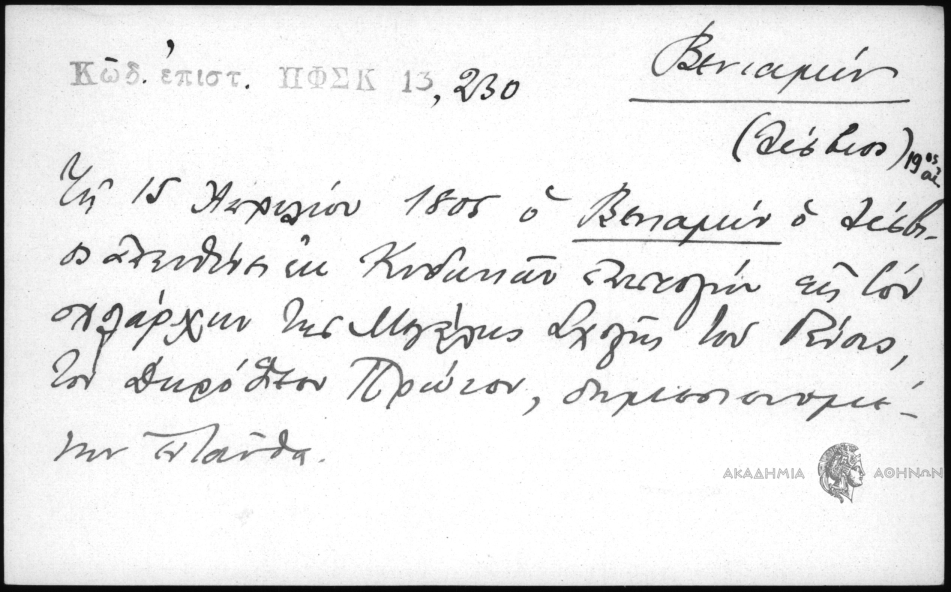 Κῶδ. ἐπιστ. ΠΦΣΚ 13, 230
Βενιαμὶν
(Λέσβιος) 19ος αἰ.
Τῇ 15 Ἀπριλίου 1805 ὁ Βενιαμὶν ὁ Λέσβι-
ος ἀπευθύνει ἐκ Κυδωνιῶν ἐπιστολὴν εἰς τὸν
σχολάρχην τῆς Μεγάλης Σχολῆς τοῦ Γένους,
τὸν Δωρόθεον Πρώϊον, δημοσιευομέ-
νην ἐνταῦθα.
ΑΚΑΔΗΜΙΑ ΑΘΗΝΩΝ